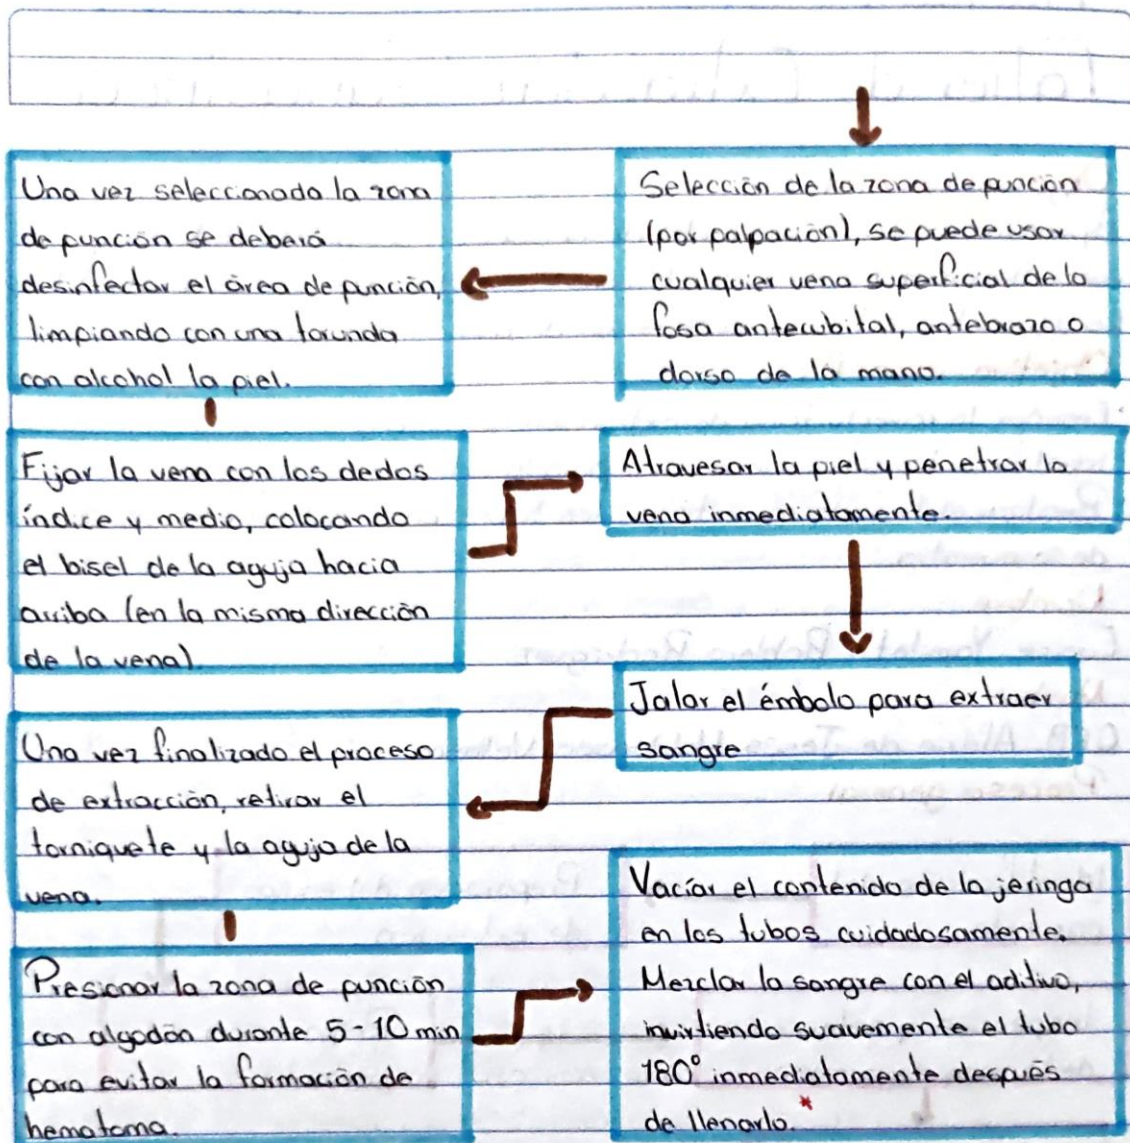 Selección de la zona de punción
(por palpación), se puede usar
cualquier vena superficial de la
fosa antecubital, antebrazo o
dorso de la mano.
Una vez seleccionada la zona
de punción se deberá
desinfectar el área de punción,
limpiando con una torunda
con alcohol la piel.
Fijar la vena con los dedos
índice y medio, colocando
el bisel de la aguja hacia
arriba (en la misma dirección
de la vena).
Atravesar la piel y penetrar la
vena inmediatamente.
Jalar el émbolo para extraer
sangre
Una vez finalizado el proceso
de extracción, retirar el
torniquete y la aguja de la
vena.
Presionar la zona de punción
con algodón durante 5-10 min
para evitar la formación de
hematoma.
Vaciar el contenido de la jeringa
en los tubos cuidadosamente.
Mezclar la sangre con el aditivo,
invirtiendo suavemente el tubo
180° inmediatamente después
de llenarlo.*